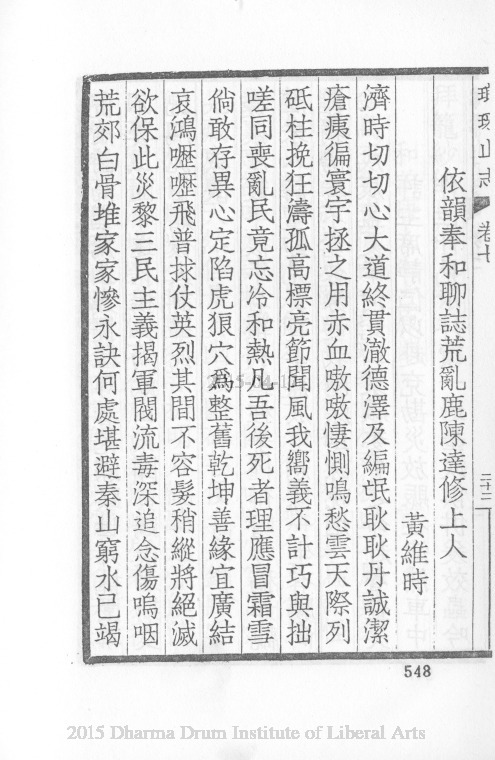 琅琊山志 卷七 二十二
依韻奉和聊誌荒亂鹿陳達修上人
黃維時
濟時切切心大道終貫澈德澤及編氓耿耿丹誠潔
瘡痍徧寰宇拯之用赤血嗷嗷悽惻鳴愁雲天際列
砥柱挽狂濤孤高標亮節聞風我嚮義不計巧與拙
嗟同喪亂民竟忘冷和熱凡吾後死者理應冒霜雪
倘敢存異心定陷虎狼穴爲整舊乾坤善緣宜廣結
哀鴻嚦嚦飛普捄仗英烈其間不容髮稍縱將絕滅
欲保此災黎三民主義揭軍閥流毒深追念傷嗚咽
荒郊白骨堆家家慘永訣何處堪避秦山窮水已竭
548
2015 Dharma Drum Institute of Liberal Arts